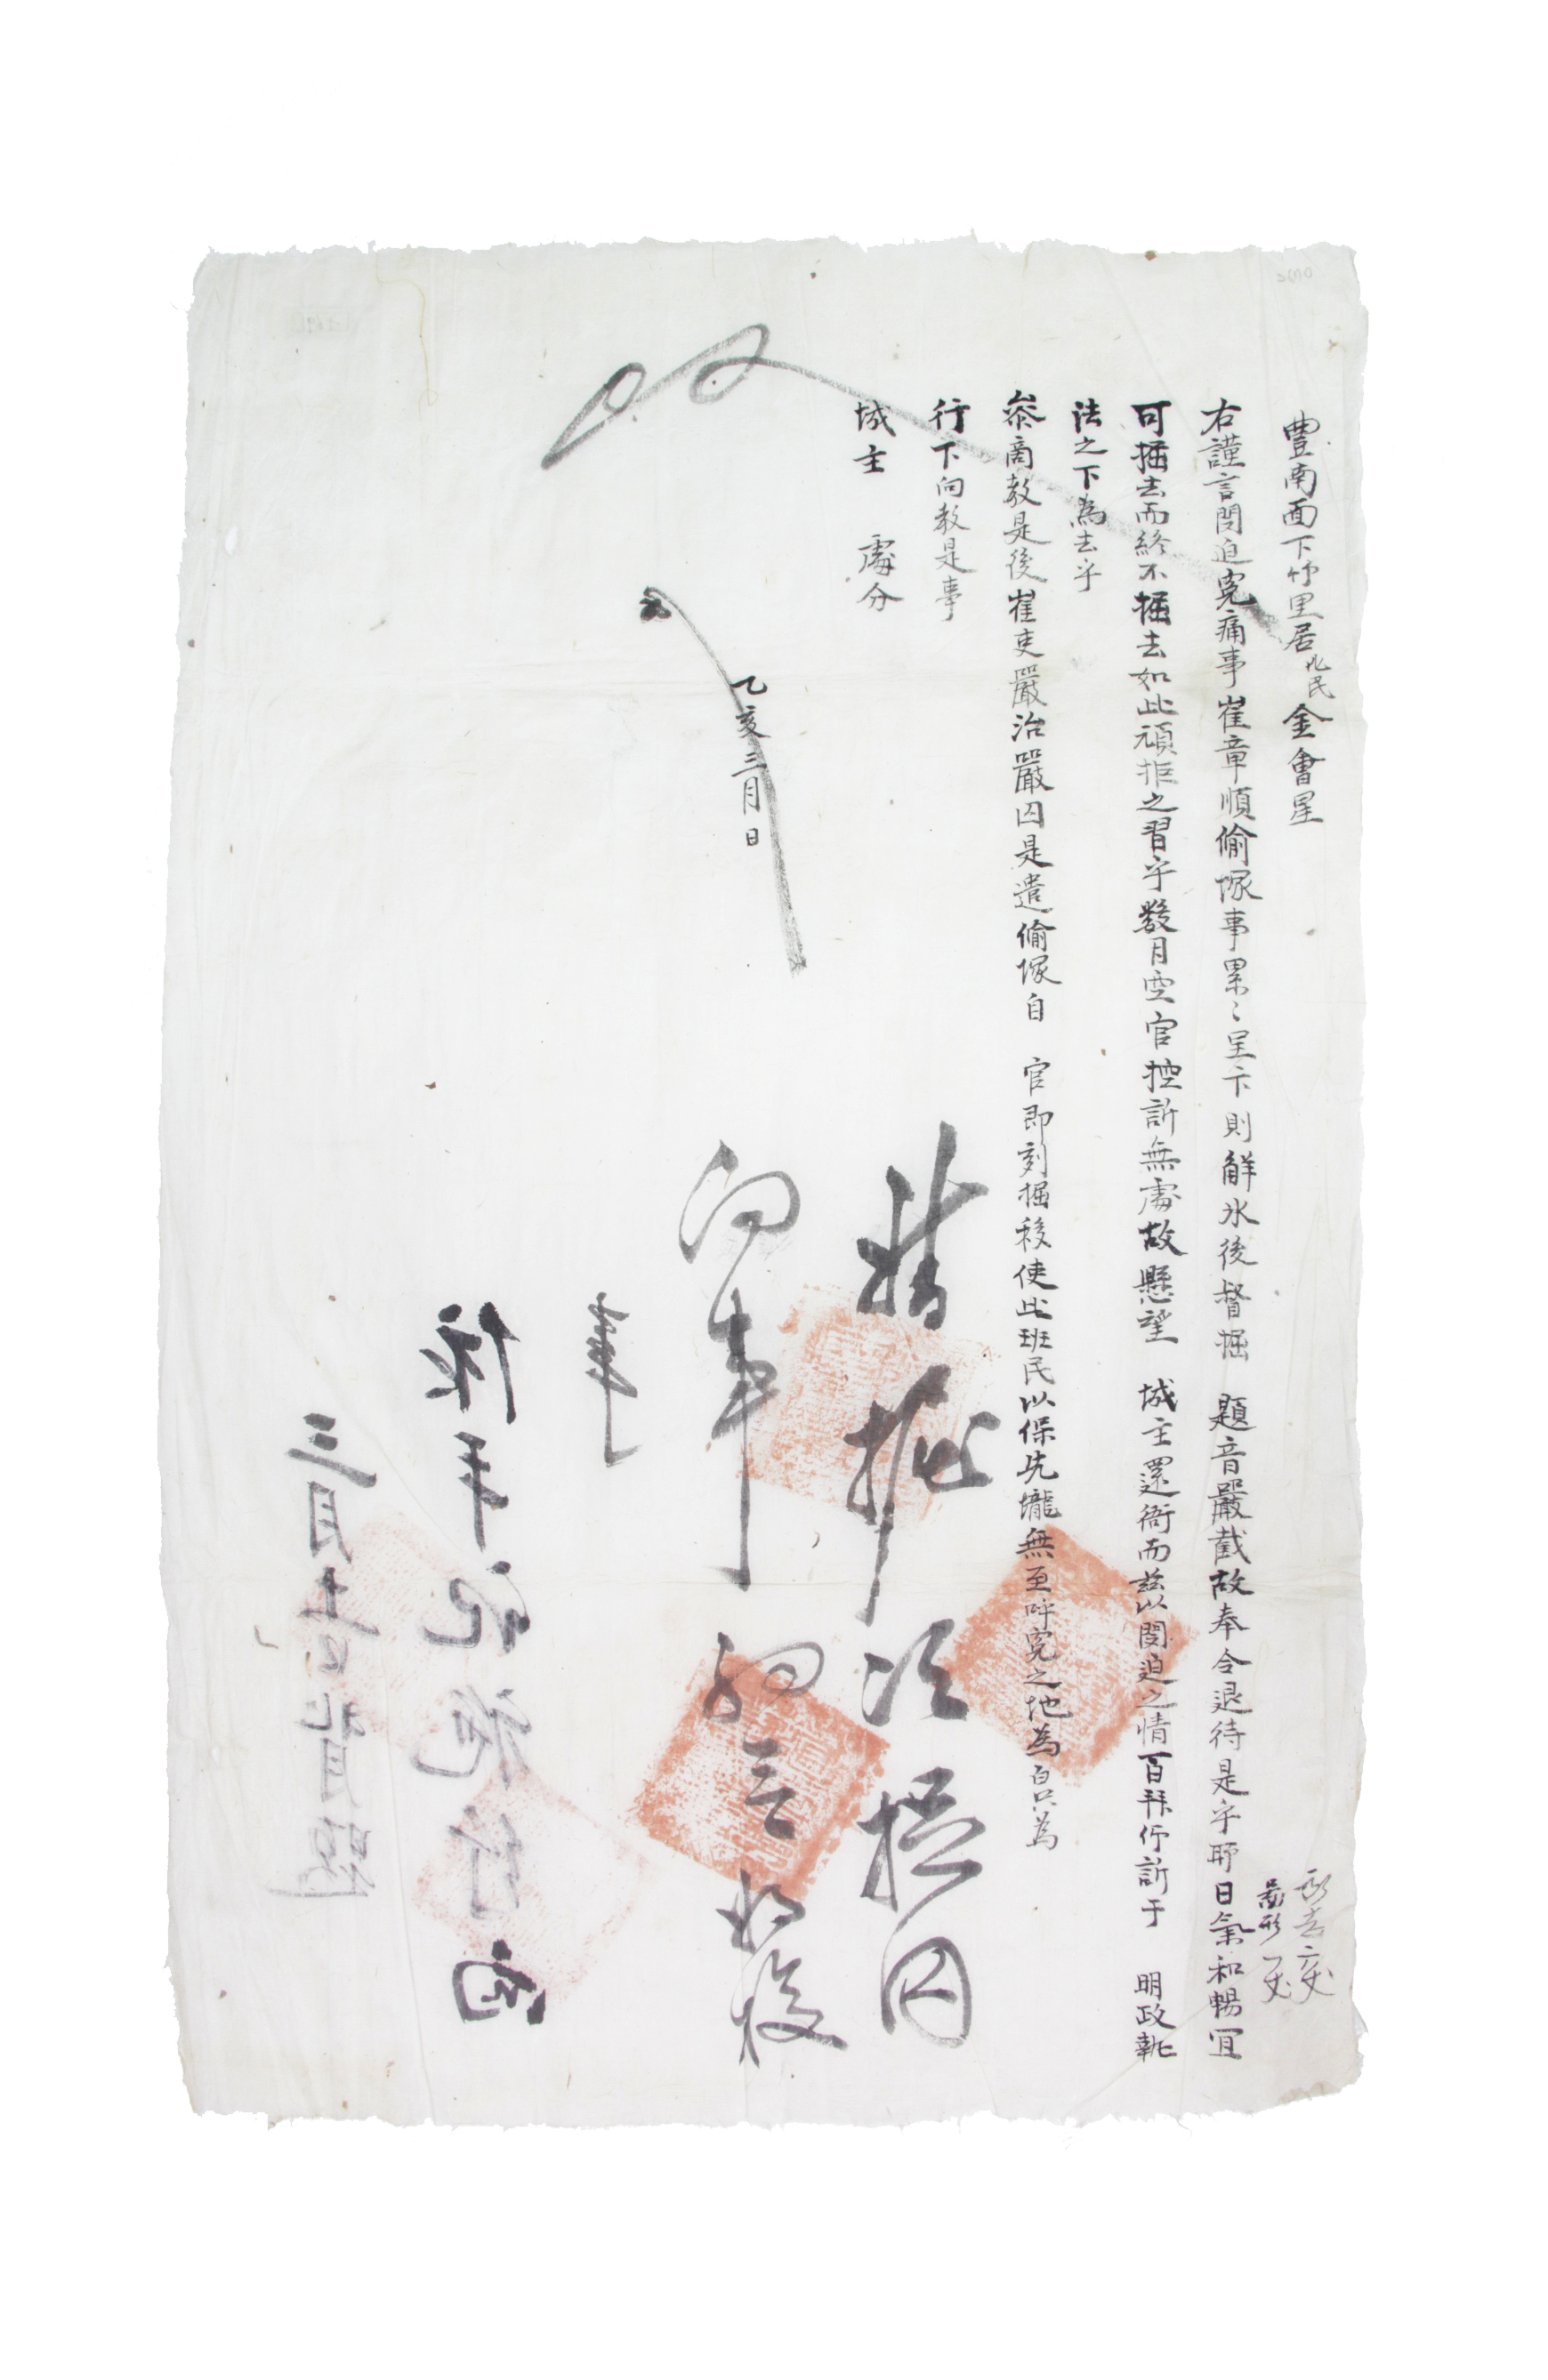 豊南面下竹里居化民金會星
右謹言悶迫寃痛事崔章順偸塚事累〻呈卞則解氷後督掘 題音嚴截故奉令退待是乎耶日氣和暢宜
可掘去而終不掘去如此頑拒之習乎數月空官控訴無處故懸望 城主還衙而玆以悶迫之情百拜仰訴于 明政執
法之下為去乎
叅商敎是後崔吏嚴治嚴囚是遣偸塚自 官卽刻掘移使此班民以保先壠無至呼寃之地為白只為
行下向敎是事
城主 處分
乙亥三月 日
督掘次捉囚
向事
事
三月十一日 背題